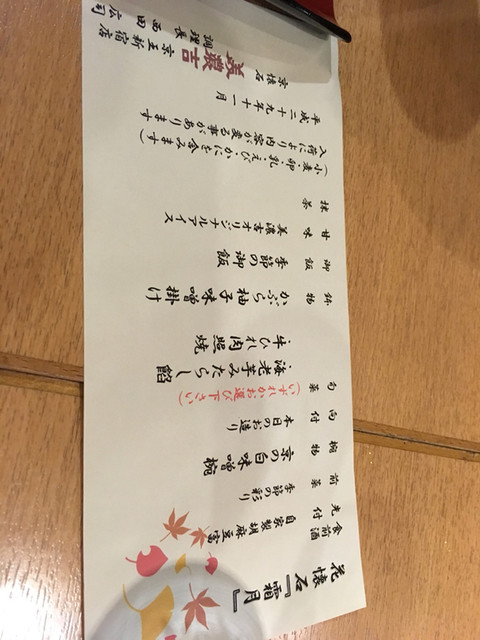 花懐石『霜月』
食前酒
先付 自家製胡麻豆富
前菜 季節の彩り
椀物 京の白味噌椀
向付 本日のお造り
旬菜 (いずれかお選び下さい)
・海老芋みたらし餡
・牛ひれ肉照焼
鉢物 かぶら柚子味噌掛け
御飯 季節の御飯
甘味 美濃吉オリジナルアイス
抹茶
(小麦・卵・乳・えび・かにを含みます)
入荷により内容が変る事があります
平成二十九年十一月
京懐石 美濃吉 京王新宿店
調理長 西田広司